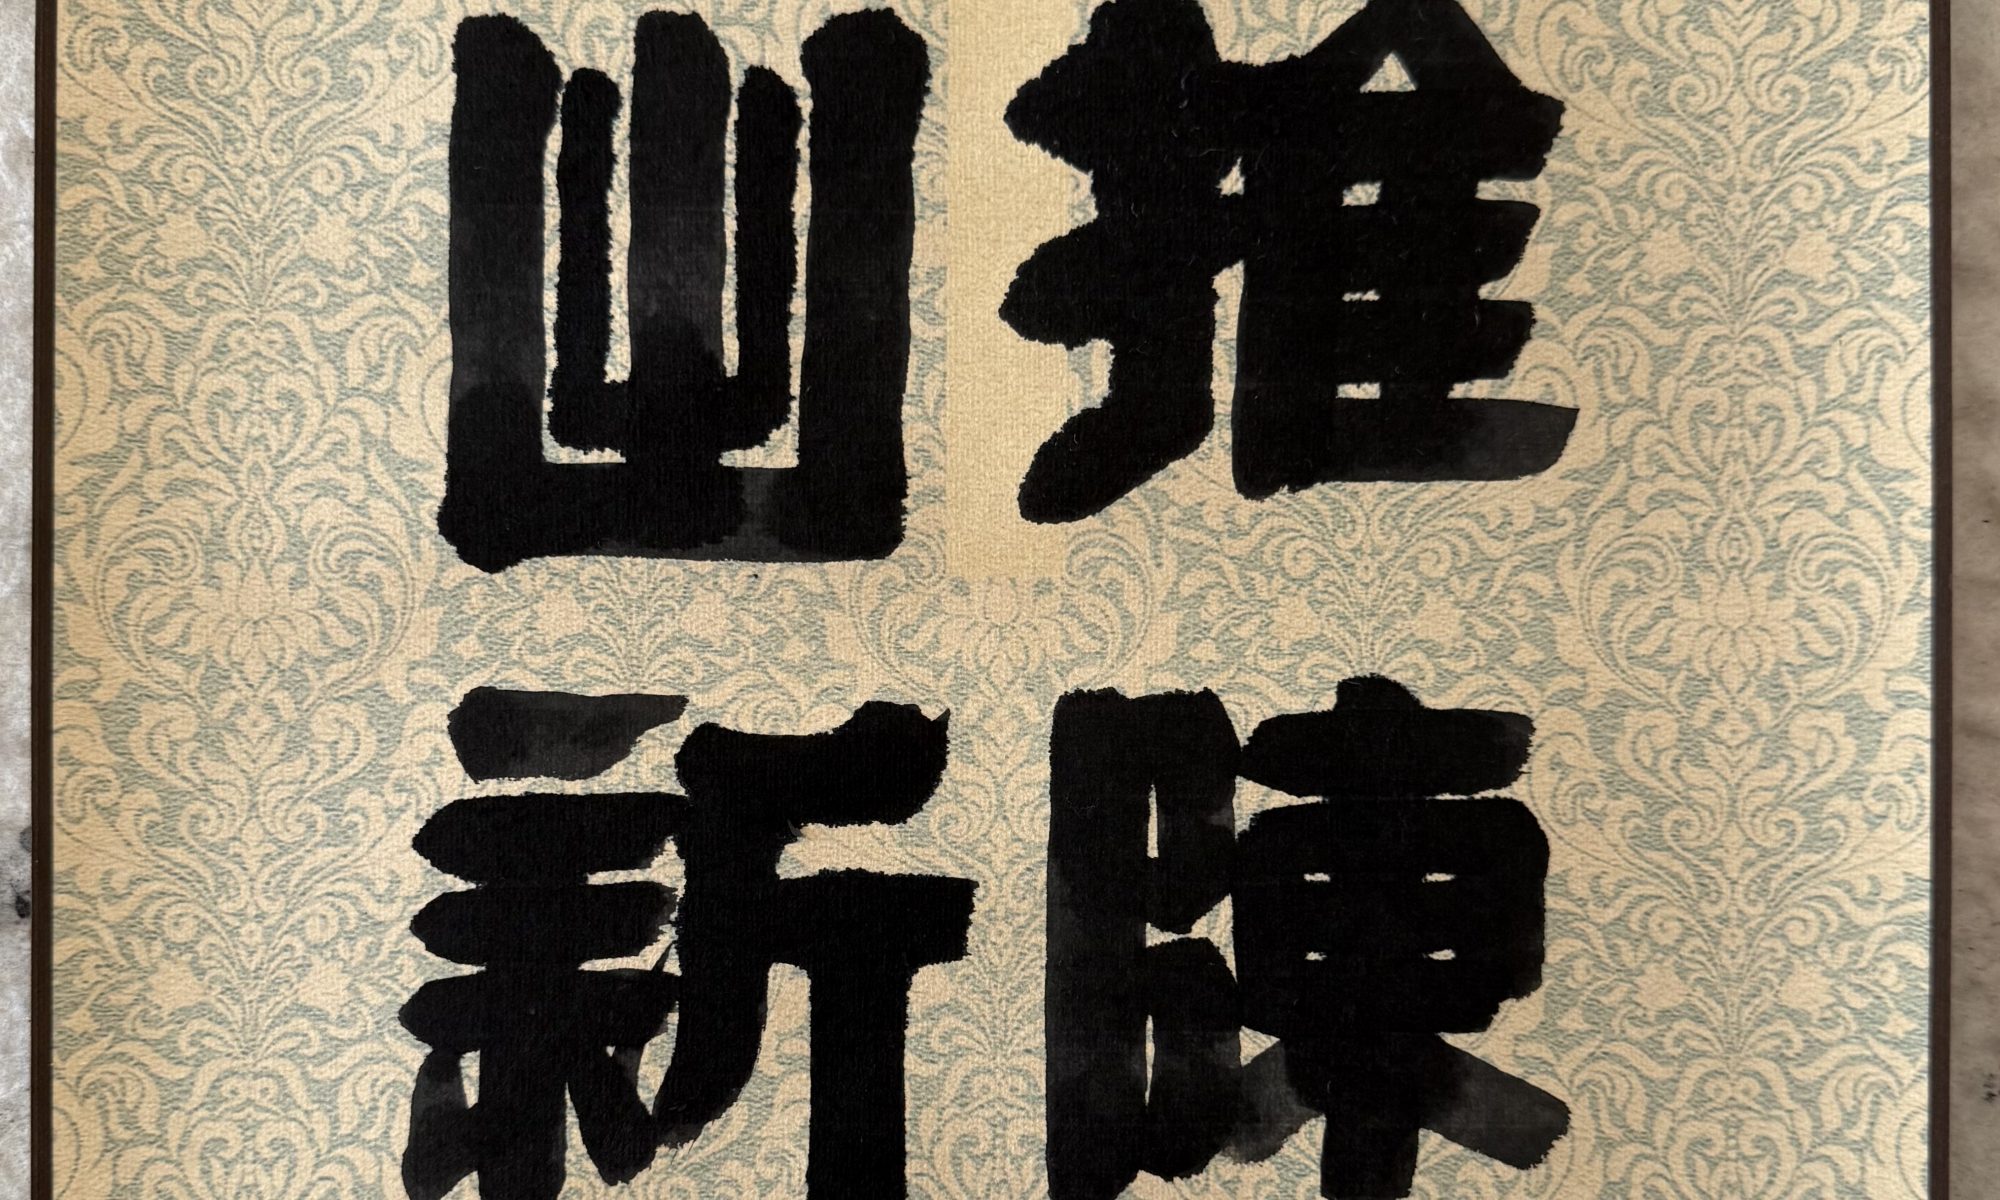 推陳
出新